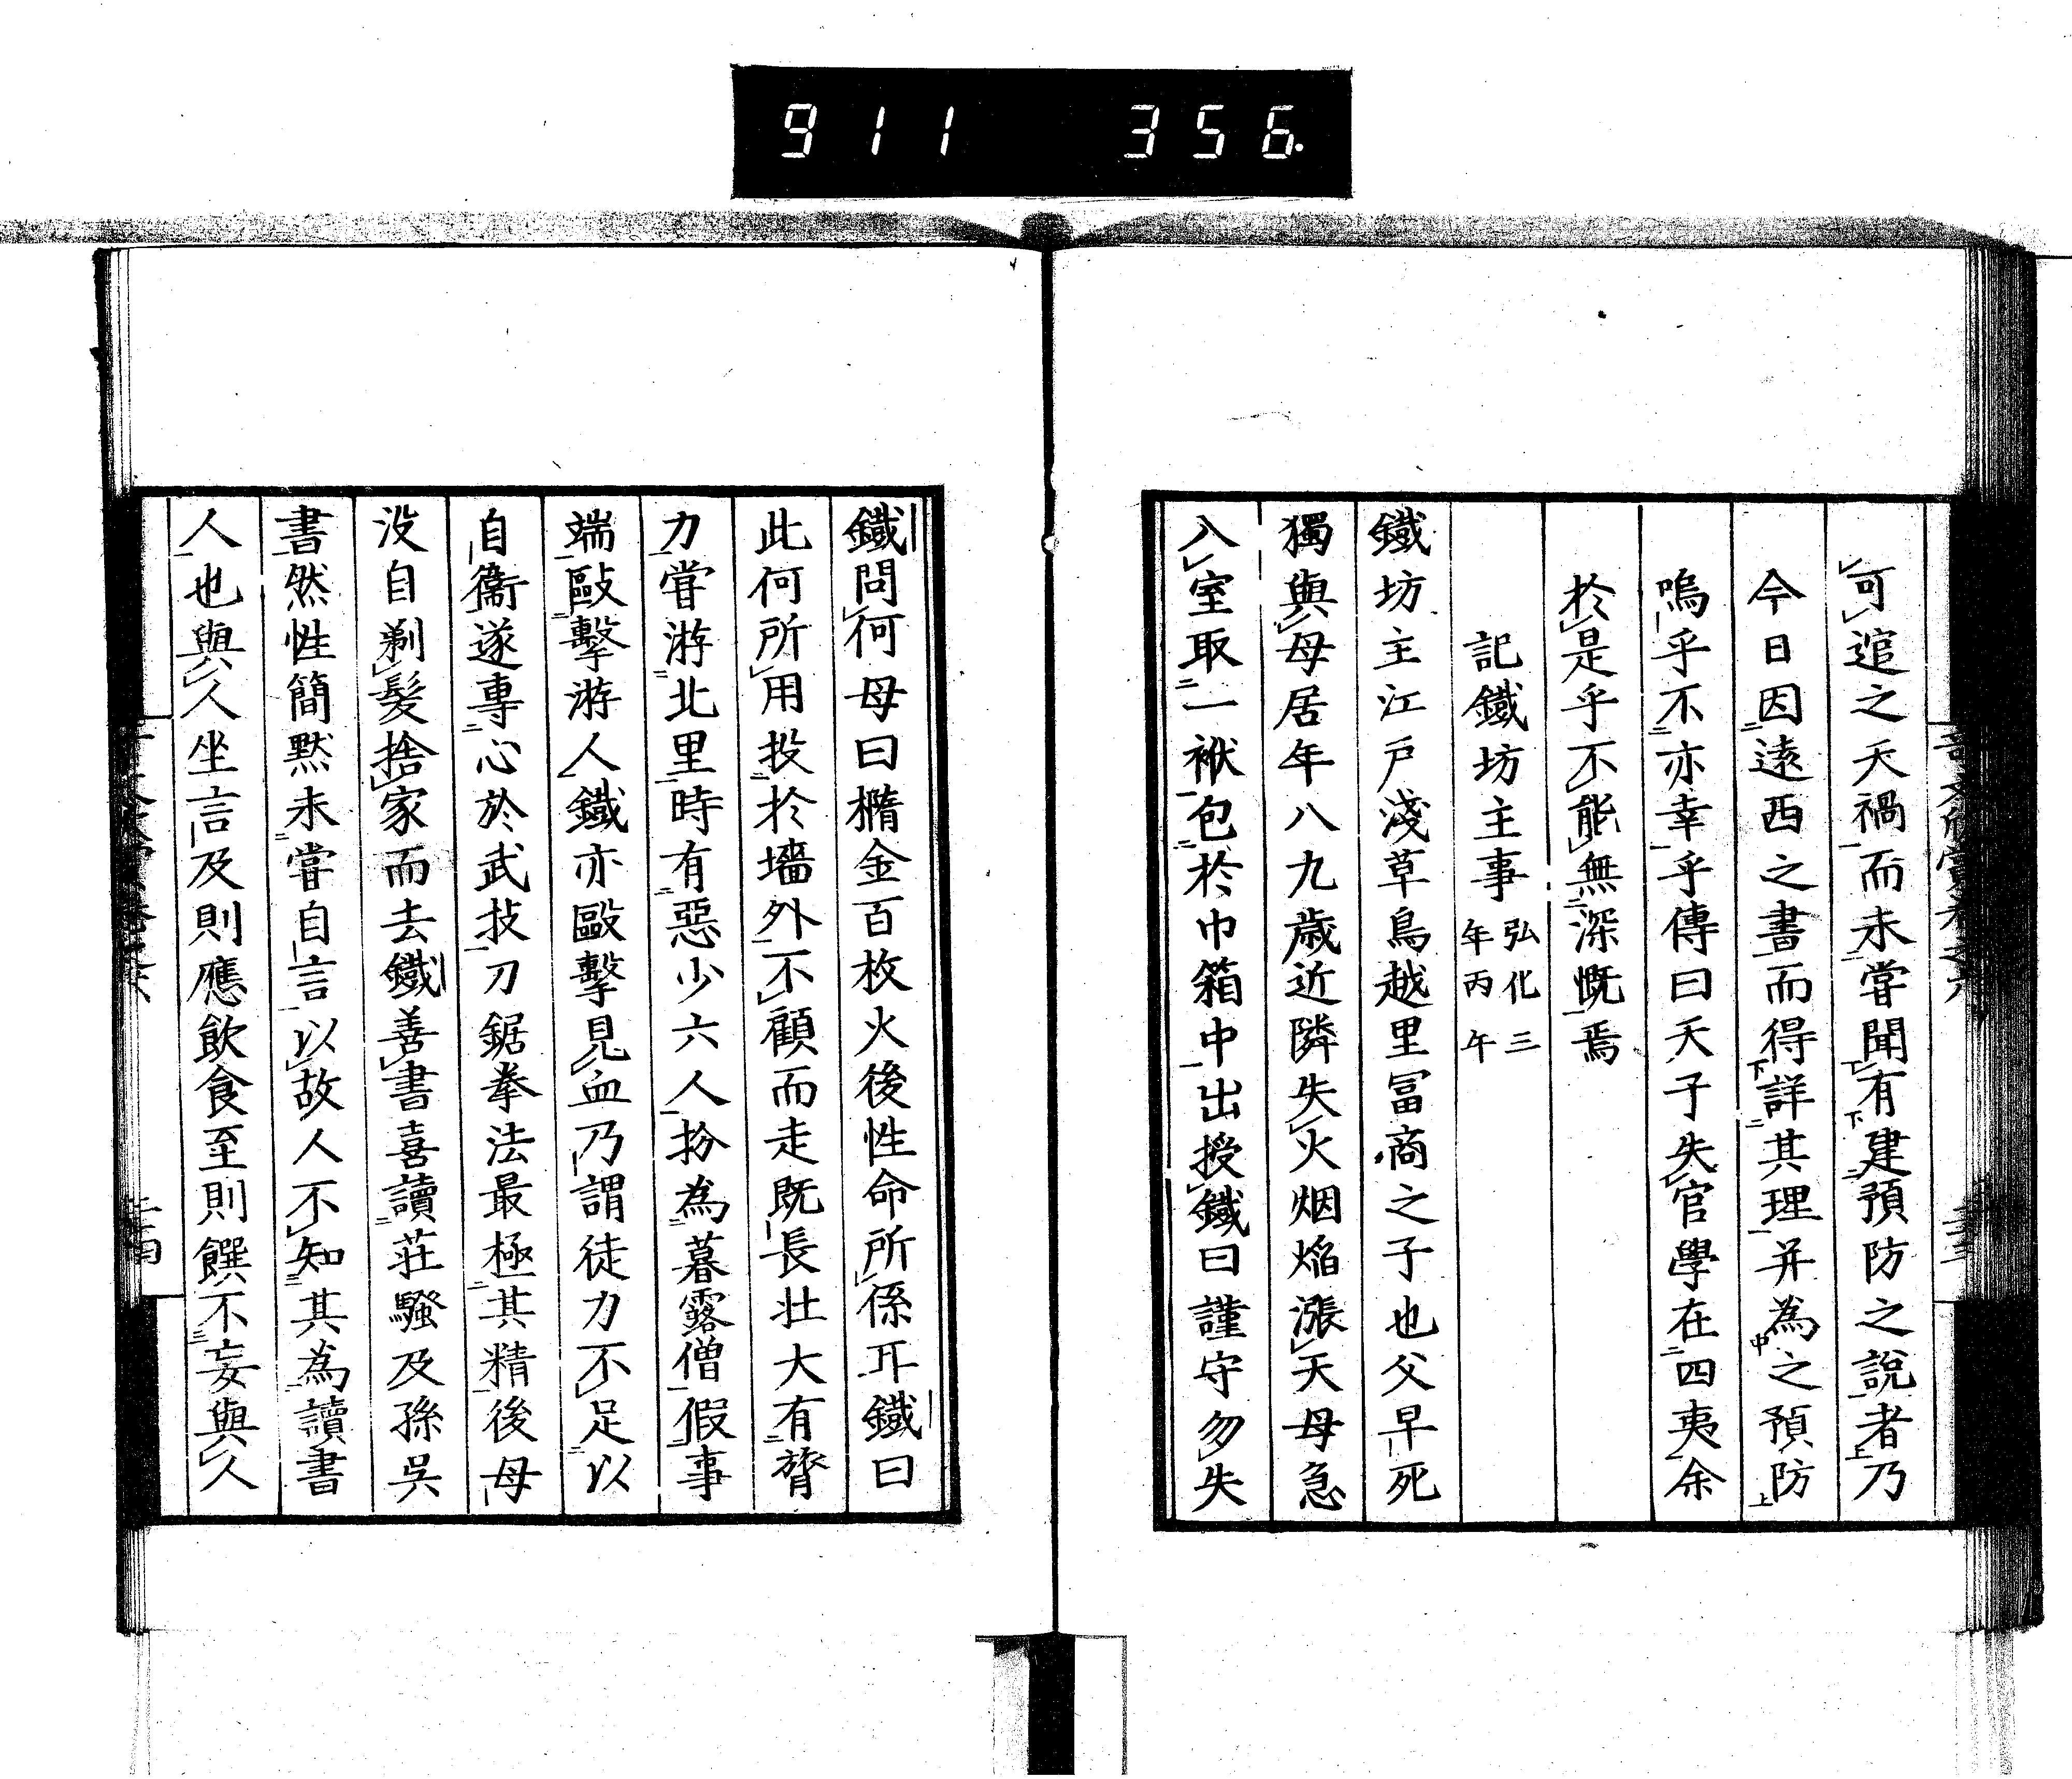 911 356.
可逭之天禍而未嘗聞有建預防之說者乃
今日因遠西之書而得詳其理并為之預防
嗚乎不亦幸乎傳曰天子失官學在四夷余
於是乎不能無深慨焉
記鐵坊主事 弘化三年丙午
鐵坊主江戶淺草鳥越里冨商之子也父早死
獨與母居年八九歲近隣失火烟焰漲天母急
入室取一袱包於巾箱中出授鐵曰謹守勿失
鐵問何母曰橢金百枚火後性命所係耳鐵曰
此何所用投於墻外不顧而走既長壯大有膂
力嘗游北里時有惡少六人扮為暮露僧假事
端毆擊游人鐵亦毆擊見血乃謂徒力不足以
自衞遂專心於武技刀鋸拳法最極其精後母
没自剃髮捨家而去鐵善書喜讀莊騷及孫吳
書然性簡黙未嘗自言以故人不知其為讀書
人也與人坐言及則應飲食至則饌不妄與人